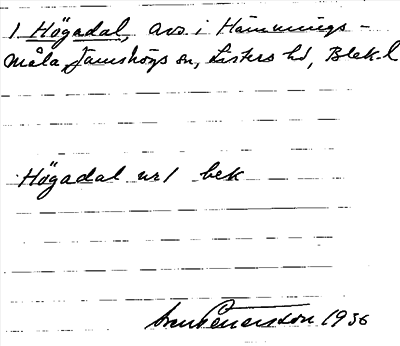 1 Högadal, avs. i Hämmings-
måla, Jämshögs sn, Listers hd, Blek. l
Högadal nr 1 bek
1936